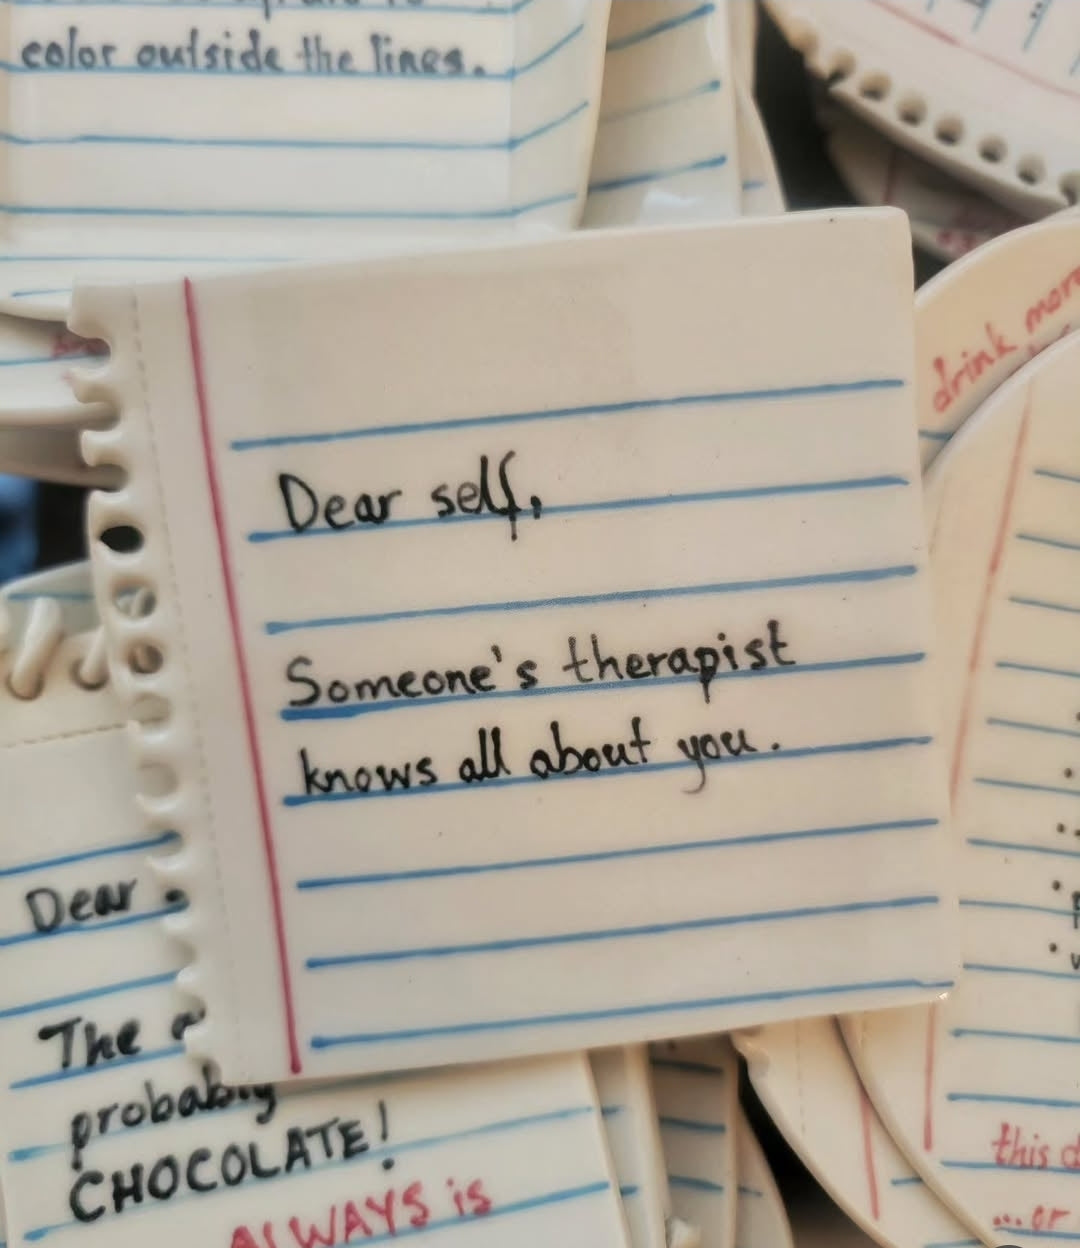 color outside the lines.
drink more
Dear self,
Someone's therapist
knows all about you.
Dear
The
probably
CHOCOLATE!
ALWAYS is
this
...or